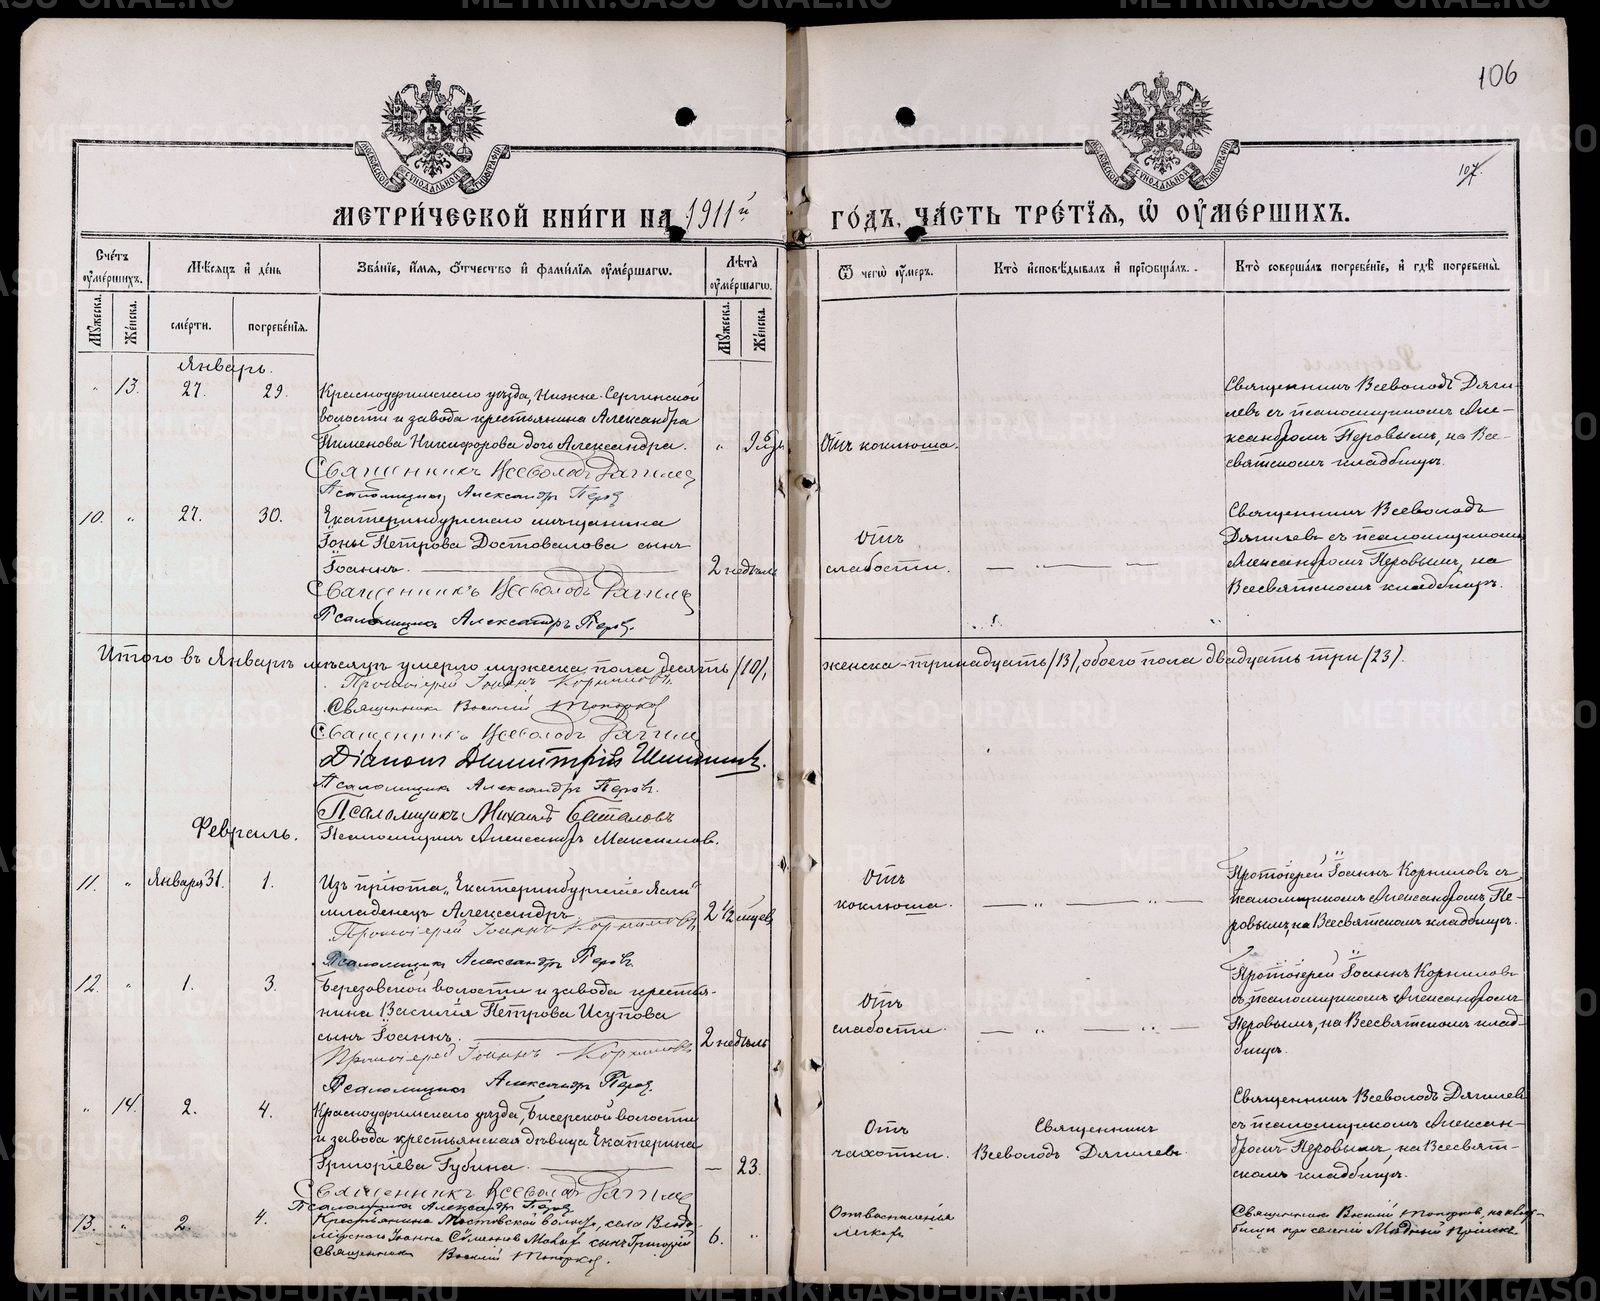 106
107.
МЕТРИ́ЧЕСКОЙ КНИ́ГИ НА 1911й ГО́ДЪ, ЧА́СТЬ ТРЕ́ТІѦ, Ѡ҆ ОУ҆МЕ́РШИХЪ.
Сче́тъ оу҆ме́ршихъ.
Мѣ́сяцъ и҆ де́нь
Зва́нїе, и҆́мя, ѻ҆́тчество и҆ фами́лїя оу҆ме́ршагѡ.
Лѣ́та оу҆ме́ршагѡ.
Ѿ чегѡ̀ оу҆́меръ.
Кто̀ и҆сповѣ́дывалъ и҆ прїѡбща́лъ.
Кто̀ соверша́лъ погребе́нїе, и҆ гдѣ̀ погребены̀.
Мꙋ́жеска.
Же́нска.
сме́рти.
погребе́нїя.
Мꙋ́жеска.
Же́нска.
Январь.
" 13. 27. 29.
Красноуфимскаго уѣзда, Нижне-Сергинской
волости и завода крестьянина Александра
Пименова Никифорова дочь Александра.
Священникъ Всеволодъ Дягилев
Псаломщик Александръ Перов
Отъ коклюша.
Священникъ Всеволодъ Дяги-
левъ съ псаломщикомъ Але-
ксандромъ Перовымъ, на Все-
святскомъ кладбищѣ.
10. " 27. 30.
Екатеринбургскаго мѣщанина
Іоны Петрова Достовалова сынъ
Іоаннъ.
2 недѣль
Священникъ Всеволодъ Дягилев
Псаломщикъ Александръ Перов.
Отъ
слабости.
Священникъ Всеволодъ
Дягилевъ съ псаломщикомъ
Александромъ Перовымъ, на
Всесвятскомъ кладбищѣ.
Итого въ Январѣ мѣсяцѣ умерло мужеска пола десять /10/, женска - тринадцать /13/, обоего пола двадцать три /23/.
Протоіерей Іоаннъ Корниловъ
Священникъ Василій Топорков
Священникъ Всеволодъ Дягилев
Діаконъ Димитрій
Псаломщикъ Александръ Перовъ.
Псаломщикъ Михаилъ
Псаломщикъ Александръ Максимовъ.
Февраль.
11. " Января 31. 1.
Изъ пріюта „Екатеринбургскіе Ясли"
младенецъ Александръ
2 ½ мцев
Протоіерей Іоаннъ Корниловъ
Псаломщикъ Александръ Перовъ.
Отъ
коклюша.
Протоіерей Іоаннъ Корниловъ съ
псаломщикомъ Александромъ Пе-
ровымъ, на Всесвятскомъ кладбищѣ.
12. " 1. 3.
Березовской волости и завода крестья-
нина Василія Петрова Исупова
сынъ Іоаннъ.
2 недѣль
Протоіерей Іоаннъ Корниловъ
Псаломщикъ Александръ Перов.
Отъ
слабости.
Протоіерей Іоаннъ Корниловъ
съ псаломщикомъ Александромъ
Перовымъ, на Всесвятскомъ клад-
бищѣ.
" 14. 2. 4.
Красноуфимскаго уѣзда, Бисерской волости
и завода крестьянская дѣвица Екатерина
Григоріева Губина.
— 23.
Священникъ Всеволодъ Дягилев
Псаломщикъ Александръ Перов
Отъ
чахотки.
Священникъ
Всеволодъ Дягилевъ.
Священникъ Всеволодъ Дягилевъ
съ псаломщикомъ Алексан-
дромъ Перовымъ, на Всесвят-
скомъ кладбищѣ.
13. " 2. 4.
Крестьянина Мостовской волости, села
Іоанна сынъ Григорій
6. "
Священникъ Василій Топорков.
Отъ воспаленія
легкихъ
Священникъ Василій Топорковъ, на клад-
бищѣ при селеніи
METRIKI.GASO-URAL.RU